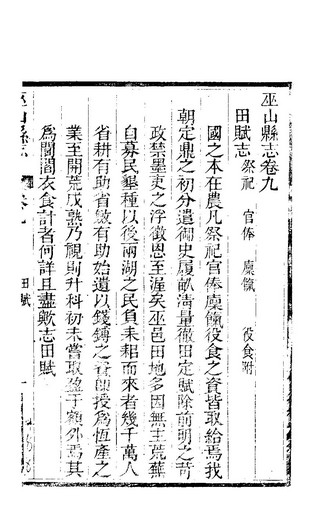 巫山縣志卷九
田賦志 祭祀 官俸 廩餼 役食附
國之本在農凡祭祀官俸廩餼役食之資皆取給焉我
朝定鼎之初分遣御史履畝清量徹田定賦除前明之苛
政禁墨吏之浮徵恩至渥矣巫邑田地多因無主荒蕪
自募民墾種以後兩湖之民負耒耜而來者幾千萬人
省耕有助省斂有助始遺以錢鎛之養即授為恆產之
業至開荒成熟乃視則升科初未嘗取盈于額外焉其
為閭閻衣食計者何詳且盡歟志田賦
巫山縣志
卷九
田賦
一